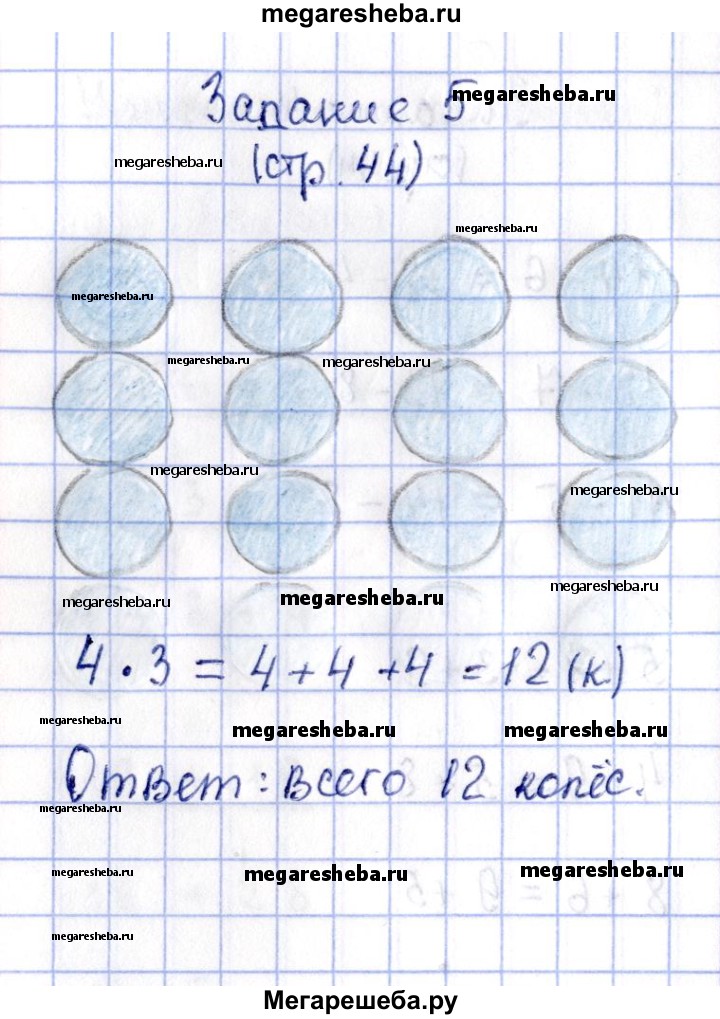 megaresheba.ru
Задание 5 megaresheba.ru
megaresheba.ru (стр. 44)
megaresheba.ru
megaresheba.ru
megaresheba.ru megaresheba.ru
megaresheba.ru
megaresheba.ru
megaresheba.ru
megaresheba.ru megaresheba.ru
4 · 3 = 4 + 4 + 4 = 12 (к)
megaresheba.ru megaresheba.ru megaresheba.ru
Ответ: всего 12 колёс.
megaresheba.ru
megaresheba.ru megaresheba.ru megaresheba.ru
megaresheba.ru
Мегарешеба.ру